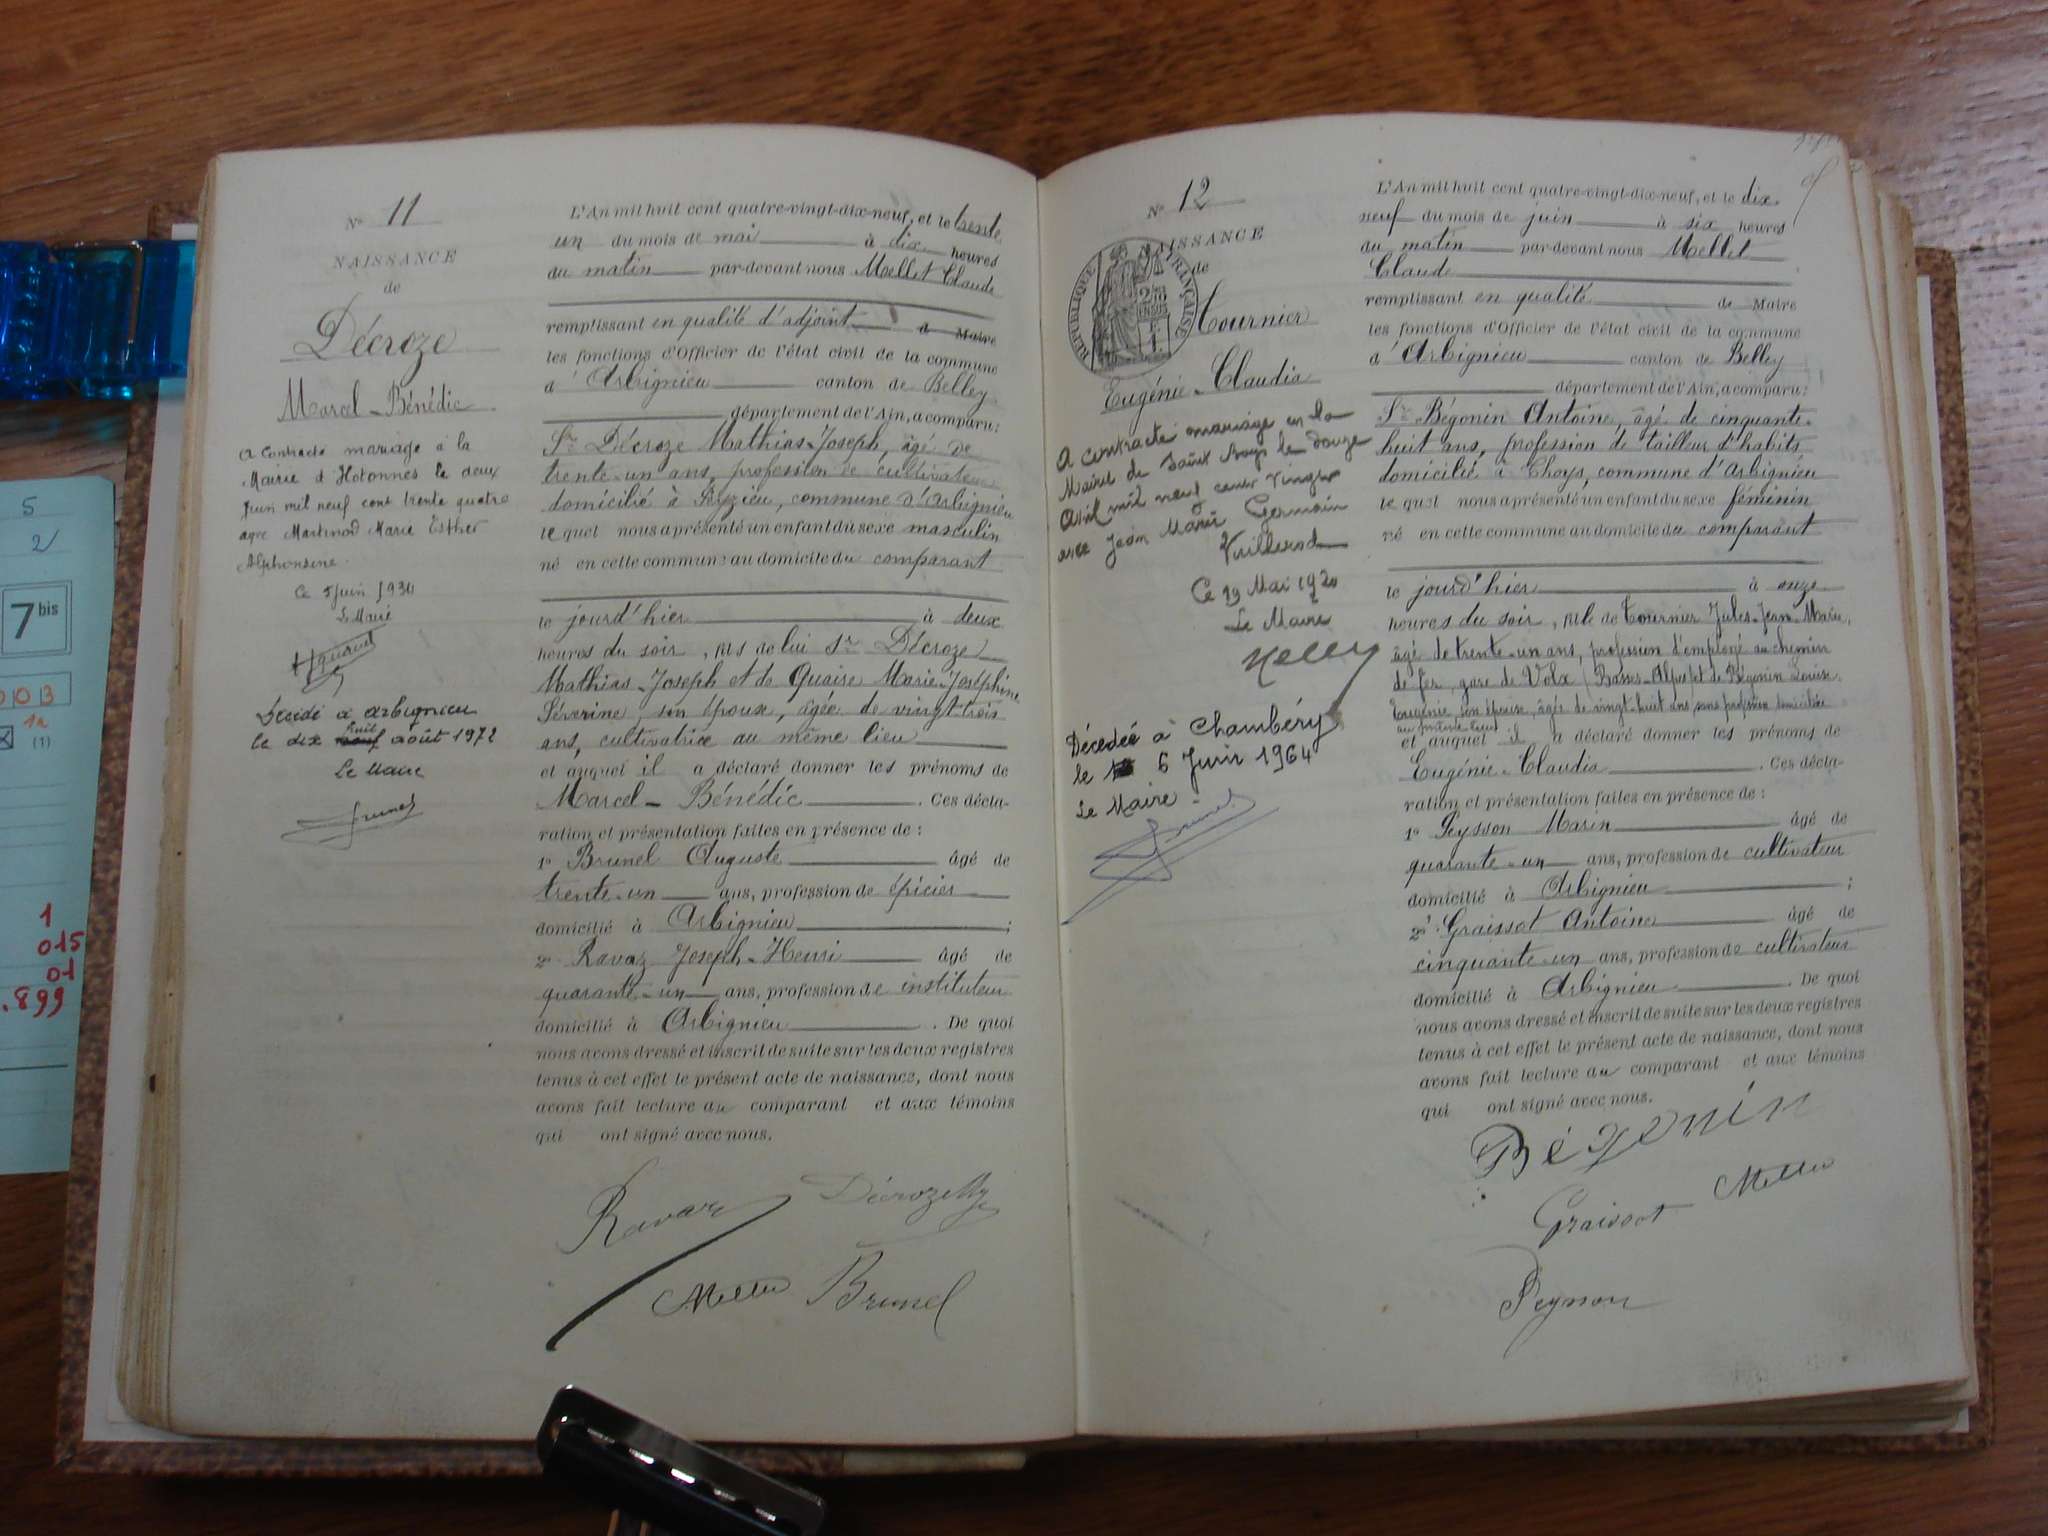 5
2
7 bis
1a
(1)
1
015
01
.899
N° 11
NAISSANCE
de
Décroze
Marcel-Bénédic
a Contracté mariage à la
Mairie d'Hotonnes le deux
Juin mil neuf cent trente quatre
avec Martinod Marie Esther
Alphonsine.
Ce 5 Juin 1934
Le Maire
Décédé à Arbignieu
le dix huit août 1972
Le Maire
Brunel
L'An mil huit cent quatre-vingt-dix-neuf, et le trente
un du mois de mai à dix heures
du matin par-devant nous Mellet Claude
remplissant en qualité d'adjoint d Maire
les fonctions d'Officier de l'état civil de la commune
d'Arbignieu canton de Belley
département de l'Ain, a comparu:
Sr Décroze Mathias-Joseph, âgé de
trente-un ans, profession de cultivateur
domicilié à Peyzieu, commune d'Arbignieu
lequel nous a présenté un enfant du sexe masculin
né en cette commune au domicile du comparant
le jourd'hier à deux
heures du soir, fils de lui Sr Décroze
Mathias-Joseph et de Quaise Marie-Joséphine
Séverine, son épouse, âgée de vingt-trois
ans, cultivatrice au même lieu
et auquel il a déclaré donner les prénoms de
Marcel-Bénédic. Ces décla-
ration et présentation faites en présence de :
1° Brunel Auguste âgé de
trente-un ans, profession de épicier
domicilié à Arbignieu ;
2° Ravaz Joseph-Henri âgé de
quarante-un ans, profession de instituteur
domicilié à Arbignieu. De quoi
nous avons dressé et inscrit de suite sur les deux registres
tenus à cet effet le présent acte de naissance, dont nous
avons fait lecture au comparant et aux témoins
qui ont signé avec nous.
Ravaz Décroze
Mellet Brunel
N° 12
NAISSANCE
de
RÉPUBLIQUE FRANÇAISE
Tournier
Eugénie-Claudia
A contracté mariage en la
Mairie de Saint Bois le douze
Avril mil neuf cent vingt
avec Jean Marie Germain
Vuillerod
Ce 19 Mai 1920
Le Maire
Décédée à Chambéry
le 6 Juin 1964
Le Maire
Brunel
L'An mil huit cent quatre-vingt-dix-neuf, et le dix
neuf du mois de juin à six heures
du matin par-devant nous Mellet
Claude
remplissant en qualité de Maire
les fonctions d'Officier de l'état civil de la commune
d'Arbignieu canton de Belley
département de l'Ain, a comparu:
Sr Bégonin Antoine, âgé de cinquante-
huit ans, profession de tailleur d'habits
domicilié à Thoys, commune d'Arbignieu
lequel nous a présenté un enfant du sexe féminin
né en cette commune au domicile du comparant
le jourd'hier à onze
heures du soir, fille de Tournier Jules-Jean-Marie,
âgé de trente-un ans, profession d'employé au chemin
de fer, gare de Volx (Basses-Alpes) et de Bégonin Louise-
Eugénie, son épouse, âgée de vingt-huit ans sans profession domiciliée
au même lieu
et auquel il a déclaré donner les prénoms de
Eugénie-Claudia. Ces décla-
ration et présentation faites en présence de :
1° Peysson Marin âgé de
quarante-un ans, profession de cultivateur
domicilié à Arbignieu ;
2° Graissot Antoine âgé de
cinquante-un ans, profession de cultivateur
domicilié à Arbignieu. De quoi
nous avons dressé et inscrit de suite sur les deux registres
tenus à cet effet le présent acte de naissance, dont nous
avons fait lecture au comparant et aux témoins
qui ont signé avec nous.
Bégonin
Mellet
Graissot
Peysson